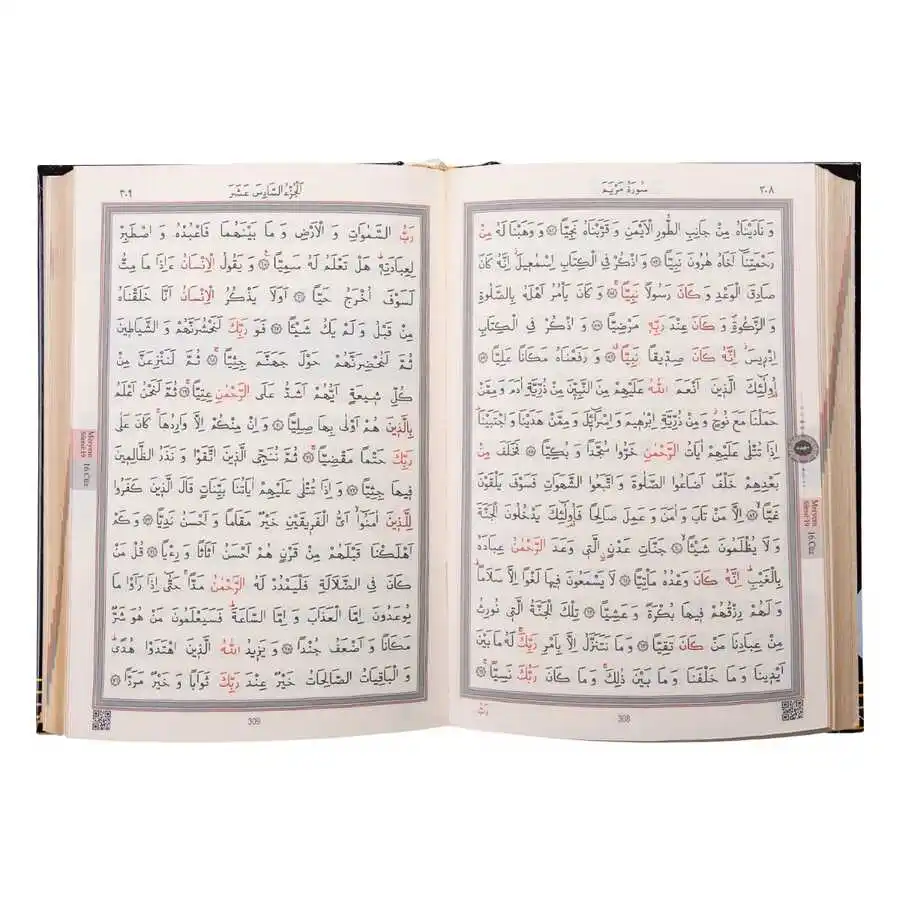 سُورَةُ مَرْيَمَ
٣٠٨
وَ نَادَيْنَاهُ مِنْ جَانِبِ الطُّورِ الْاَيْمَنِ وَ قَرَّبْنَاهُ نَجِيًّا ﴿٥٢﴾ وَ وَهَبْنَا لَهُ مِنْ
رَحْمَتِنَٓا اَخَاهُ هٰرُونَ نَبِيًّا ﴿٥٣﴾ وَ اذْكُرْ فِي الْكِتَابِ اِسْمٰعٖيلَ اِنَّهُ كَانَ
صَادِقَ الْوَعْدِ وَ كَانَ رَسُولًا نَبِيًّا ﴿٥٤﴾ وَ كَانَ يَاْمُرُ اَهْلَهُ بِالصَّلٰوةِ
وَ الزَّكٰوةِ وَ كَانَ عِنْدَ رَبِّهٖ مَرْضِيًّا ﴿٥٥﴾ وَ اذْكُرْ فِي الْكِتَابِ
اِدْرٖيسَ اِنَّهُ كَانَ صِدّٖيقًا نَبِيًّا ﴿٥٦﴾ وَ رَفَعْنَاهُ مَكَانًا عَلِيًّا ﴿٥٧﴾
اُو۬لٰٓئِكَ الَّذٖينَ اَنْعَمَ اللّٰهُ عَلَيْهِمْ مِنَ النَّبِيّٖنَ مِنْ ذُرِّيَّةِ اٰدَمَ وَ مِمَّنْ
حَمَلْنَا مَعَ نُوحٍ وَ مِنْ ذُرِّيَّةِ اِبْرٰهٖيمَ وَ اِسْرَٓائٖلَ وَ مِمَّنْ هَدَيْنَا وَ اجْتَبَيْنَا
اِذَا تُتْلٰى عَلَيْهِمْ اٰيَاتُ الرَّحْمٰنِ خَرُّوا سُجَّدًا وَ بُكِيًّا ﴿٥٨﴾ فَخَلَفَ مِنْ
بَعْدِهِمْ خَلْفٌ اَضَاعُوا الصَّلٰوةَ وَ اتَّبَعُوا الشَّهَوَاتِ فَسَوْفَ يَلْقَوْنَ
غَيًّا ﴿٥٩﴾ اِلَّا مَنْ تَابَ وَ اٰمَنَ وَ عَمِلَ صَالِحًا فَاُو۬لٰٓئِكَ يَدْخُلُونَ الْجَنَّةَ
وَ لَا يُظْلَمُونَ شَيْـًٔا ﴿٦٠﴾ جَنَّاتِ عَدْنٍ الَّتٖي وَعَدَ الرَّحْمٰنُ عِبَادَهُ
بِالْغَيْبِ اِنَّهُ كَانَ وَعْدُهُ مَاْتِيًّا ﴿٦١﴾ لَا يَسْمَعُونَ فٖيهَا لَغْوًا اِلَّا سَلَامًا
وَ لَهُمْ رِزْقُهُمْ فٖيهَا بُكْرَةً وَ عَشِيًّا ﴿٦٢﴾ تِلْكَ الْجَنَّةُ الَّتٖي نُورِثُ
مِنْ عِبَادِنَا مَنْ كَانَ تَقِيًّا ﴿٦٣﴾ وَ مَا نَتَنَزَّلُ اِلَّا بِاَمْرِ رَبِّكَ لَهُ مَا بَيْنَ
اَيْدٖينَا وَ مَا خَلْفَنَا وَ مَا بَيْنَ ذٰلِكَ وَ مَا كَانَ رَبُّكَ نَسِيًّا ﴿٦٤﴾
رَبُّ
308
Meryem
Sûresi 19
16.Cüz
اَلْجُزْءُ السَّادِسَ عَشَرَ
٣٠٩
رَبُّ السَّمٰوَاتِ وَ الْاَرْضِ وَ مَا بَيْنَهُمَا فَاعْبُدْهُ وَ اصْطَبِرْ
لِعِبَادَتِهٖ هَلْ تَعْلَمُ لَهُ سَمِيًّا ﴿٦٥﴾ وَ يَقُولُ الْاِنْسَانُ ءَاِذَا مَا مِتُّ
لَسَوْفَ اُخْرَجُ حَيًّا ﴿٦٦﴾ اَوَلَا يَذْكُرُ الْاِنْسَانُ اَنَّا خَلَقْنَاهُ
مِنْ قَبْلُ وَ لَمْ يَكُ شَيْـًٔا ﴿٦٧﴾ فَوَ رَبِّكَ لَنَحْشُرَنَّهُمْ وَ الشَّيَاطٖينَ
ثُمَّ لَنُحْضِرَنَّهُمْ حَوْلَ جَهَنَّمَ جِثِيًّا ﴿٦٨﴾ ثُمَّ لَنَنْزِعَنَّ مِنْ
كُلِّ شٖيعَةٍ اَيُّهُمْ اَشَدُّ عَلَى الرَّحْمٰنِ عِتِيًّا ﴿٦٩﴾ ثُمَّ لَنَحْنُ اَعْلَمُ
بِالَّذٖينَ هُمْ اَوْلٰى بِهَا صِلِيًّا ﴿٧٠﴾ وَ اِنْ مِنْكُمْ اِلَّا وَارِدُهَا كَانَ عَلٰى
رَبِّكَ حَتْمًا مَقْضِيًّا ﴿٧١﴾ ثُمَّ نُنَجِّي الَّذٖينَ اتَّقَوْا وَ نَذَرُ الظَّالِمٖينَ
فٖيهَا جِثِيًّا ﴿٧٢﴾ وَ اِذَا تُتْلٰى عَلَيْهِمْ اٰيَاتُنَا بَيِّنَاتٍ قَالَ الَّذٖينَ كَفَرُوا
لِلَّذٖينَ اٰمَنُٓوا اَيُّ الْفَرٖيقَيْنِ خَيْرٌ مَقَامًا وَ اَحْسَنُ نَدِيًّا ﴿٧٣﴾ وَ كَمْ
اَهْلَكْنَا قَبْلَهُمْ مِنْ قَرْنٍ هُمْ اَحْسَنُ اَثَاثًا وَ رِءْيًا ﴿٧٤﴾ قُلْ مَنْ
كَانَ فِي الضَّلَالَةِ فَلْيَمْدُدْ لَهُ الرَّحْمٰنُ مَدًّا حَتّٰٓى اِذَا رَاَوْا مَا
يُوعَدُونَ اِمَّا الْعَذَابَ وَ اِمَّا السَّاعَةَ فَسَيَعْلَمُونَ مَنْ هُوَ شَرٌّ
مَكَانًا وَ اَضْعَفُ جُنْدًا ﴿٧٥﴾ وَ يَزٖيدُ اللّٰهُ الَّذٖينَ اهْتَدَوْا هُدًى
وَ الْبَاقِيَاتُ الصَّالِحَاتُ خَيْرٌ عِنْدَ رَبِّكَ ثَوَابًا وَ خَيْرٌ مَرَدًّا ﴿٧٦﴾
309
Meryem
Sûresi 19
16.Cüz